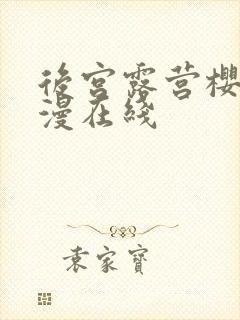 後宮露营櫻
漫在线
袁家寶